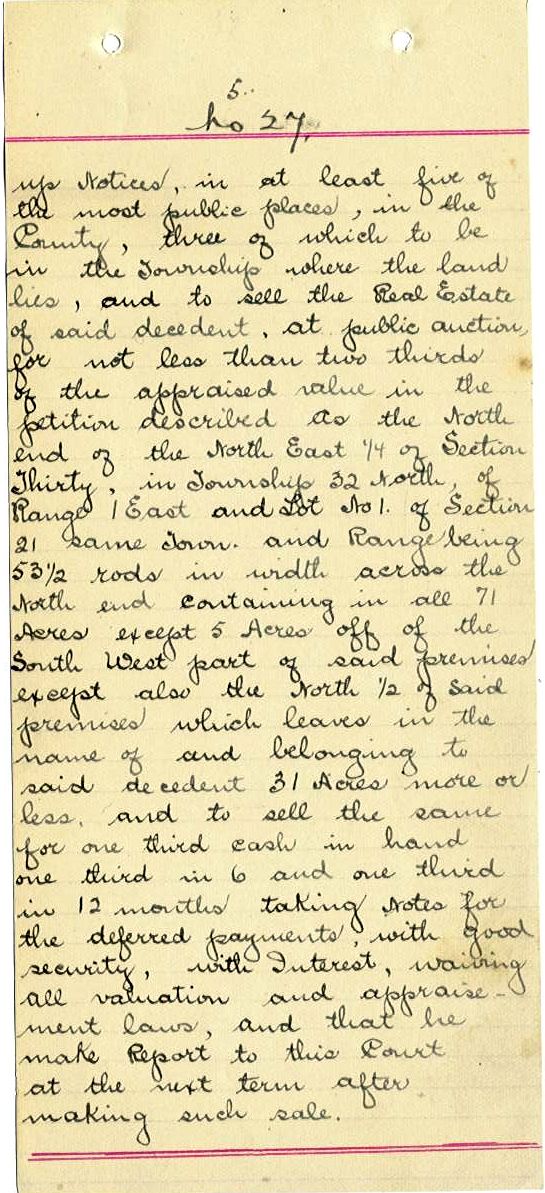 5.
No 27.
up Notices, in at least five of
the most public places, in the
County, three of which to be
in the Township where the land
lies, and to sell the Real Estate
of said decedent, at public auction,
for not less than two thirds
of the appraised value in the
petition described as the North
end of the North East 1/4 of Section
Thirty, in Township 32 North, of
Range 1 East and Lot No 1. of Section
21 same Town. and Range being
53 1/2 rods in width across the
North end containing in all 71
Acres except 5 Acres off of the
South West part of said premises
except also the North 1/2 of said
premises which leaves in the
name of and belonging to
said decedent 31 Acres more or
less, and to sell the same
for one third cash in hand
one third in 6 and one third
in 12 months taking Notes for
the deferred payments, with good
security, with Interest, waiving
all valuation and appraise-
ment laws, and that he
make Report to this Court
at the next term after
making such sale.